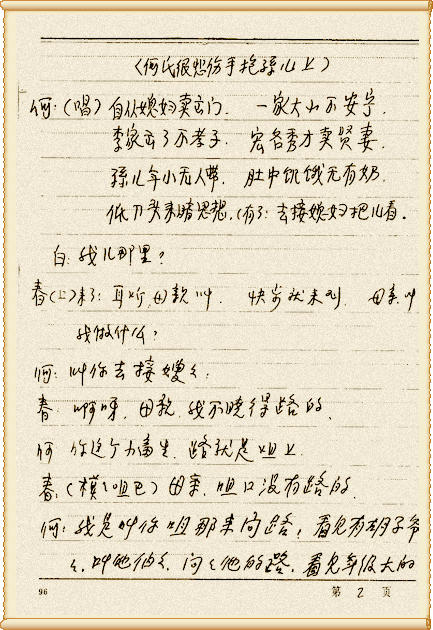 (何氏很愁伤手抱孙儿上)
何:(唱)自从媳妇卖出门. 一家大小不安宁.
李家出了不孝子. 宏各秀才卖贤妻.
孙儿年小无人带. 肚中饥饿无有奶.
低刀头来暗思想.(有了:去接媳妇把儿看.
白:我儿那里?
春(上)来了:耳听母亲叫. 快步就来到. 母亲叫
我做什么?
何:叫你去接嫂々:
春:啊呀.母亲.我不晓得路的.
何 你这个 生.路就是咀上
春:(摸々咀巴)母亲.咀口没有路的.
何:我是叫你咀那来问路,看见有胡子爷
々,叫他伯々,问々他的路.看见年级大的
96 第 2 页